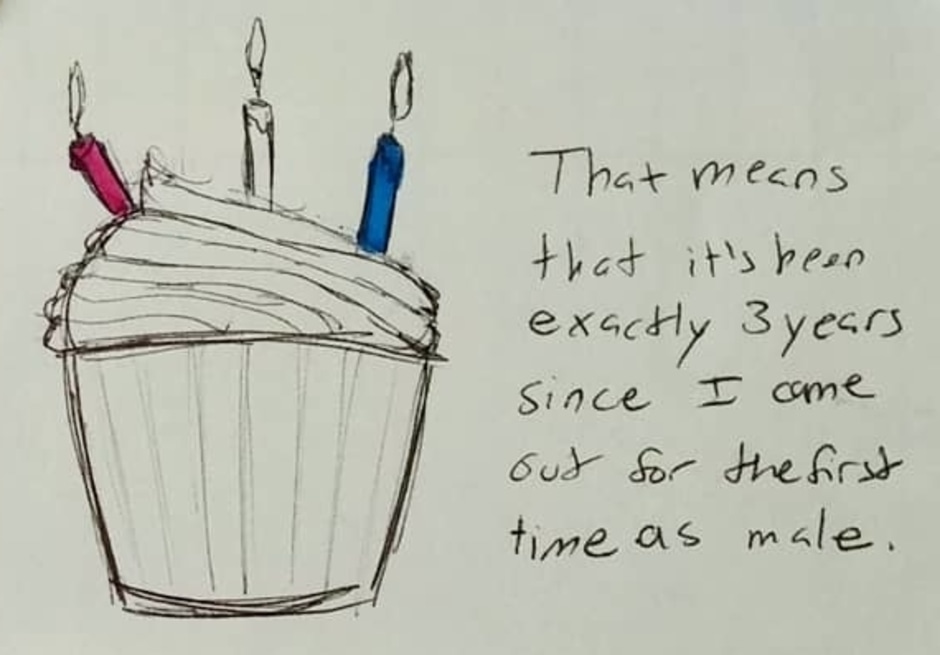 That means
that it's been
exactly 3 years
since I came
out for the first
time as male.